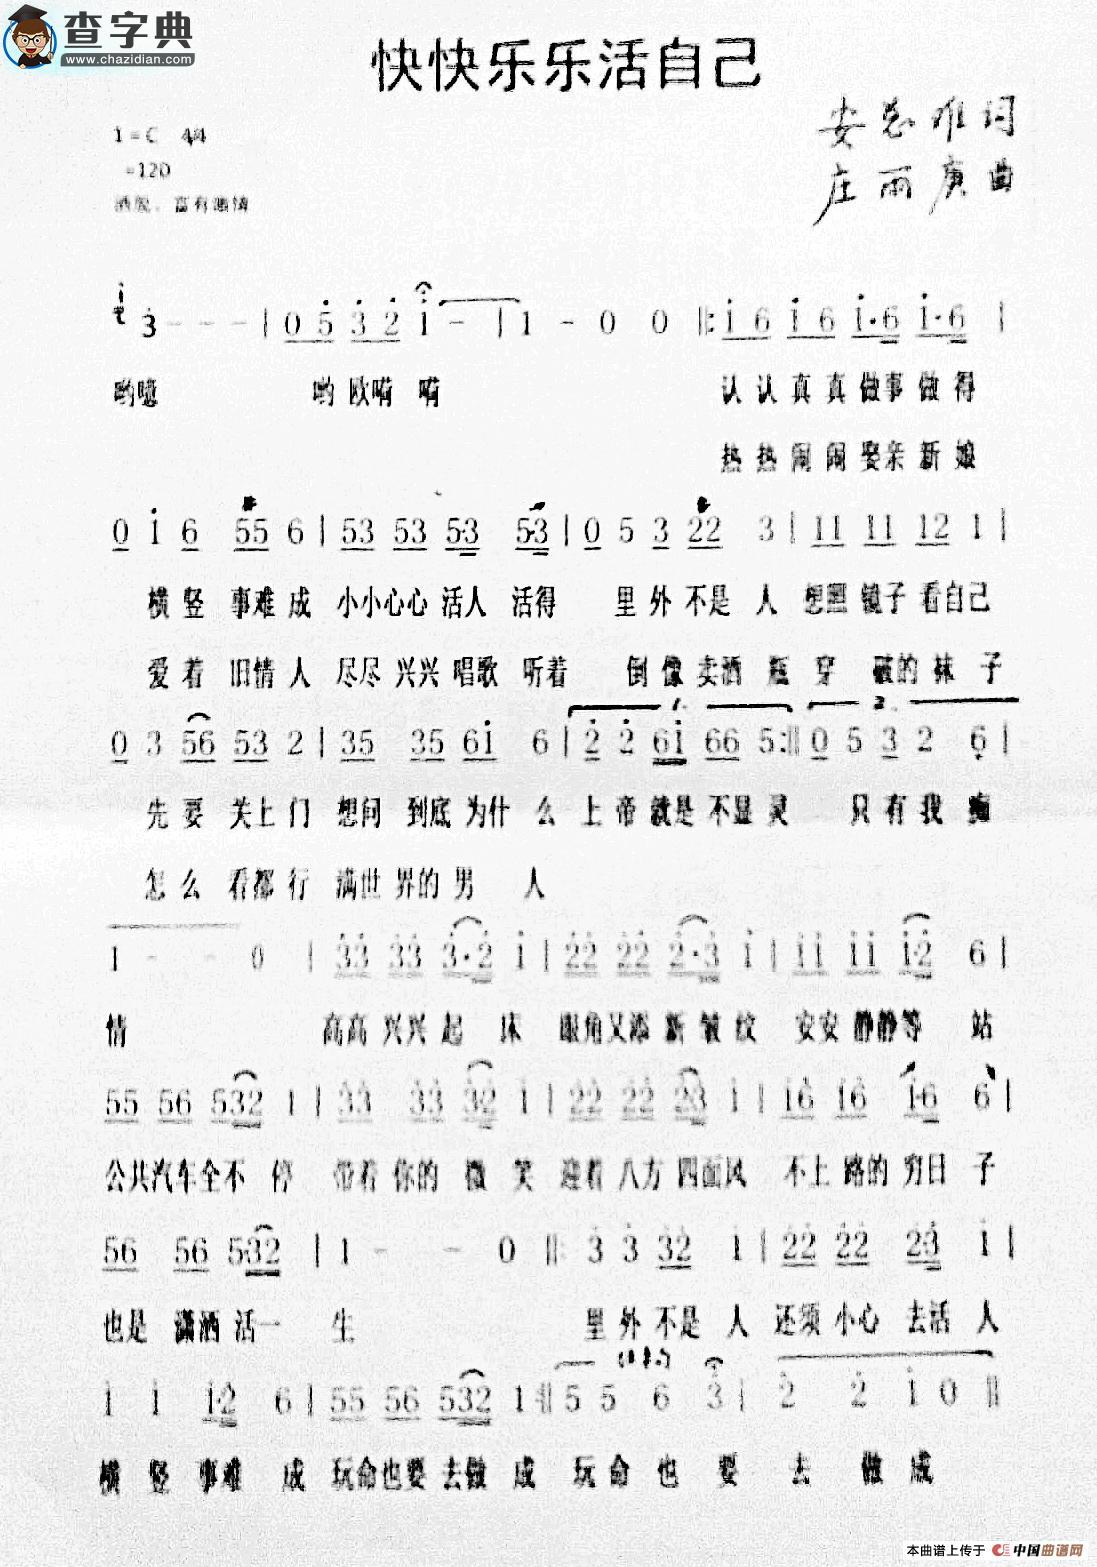 查字典
www.chazidian.com
快快乐乐活自己
词
1=C 4/4
庄 曲
=120
洒脱、富有激情
3 - - - | 0 5 3 2 1 - | 1 - 0 0 ‖: 1 6 1 6 1·6 1·6 |
哟噫 哟 欧嗬 嗬 认 认 真 真 做事 做 得
热 热 闹 闹 娶亲 新 娘
0 1 6 55 6 | 53 53 53 53 | 0 5 3 22 3 | 11 11 12 1 |
横 竖 事难 成 小小心心 活人 活得 里 外 不是 人 想照 镜子 看自己
爱 着 旧情 人 尽尽 兴兴 唱歌 听着 倒 像 卖酒 瓶 穿 破的 袜 子
1. 2.
0 3 56 53 2 | 35 35 61 6 | 2 2 61 66 5 :‖ 0 5 3 2 6 |
先 要 关上 门 想问 到底 为什 么 上 帝 就是 不显 灵 只 有 我 痴
怎 么 看都 行 满世 界的 男 人
1 - - 0 | 33 33 3·2 1 | 22 22 2·3 1 | 11 11 1·2 6 |
情 高高 兴兴 起 床 眼角又添 新 皱 纹 安安 静静 等 站
55 56 532 1 | 33 33 32 1 | 22 22 23 1 | 16 16 1·6 6 |
公共汽车全不 停 带着 你的 微 笑 迎着 八方 四面风 不上 路的 穷日 子
56 56 532 | 1 - - 0 ‖: 3 3 32 1 | 22 22 23 1 |
也是 潇洒 活一 生 里 外 不是 人 还须 小心 去活 人
1 1 1·2 6 | 55 56 532 1 :‖ 5 5 6 3 | 2 2 1 0 ‖
横 竖 事难 成 玩命也要 去做 成 玩 命 也 要 去 做 成
本曲谱上传于 中国曲谱网